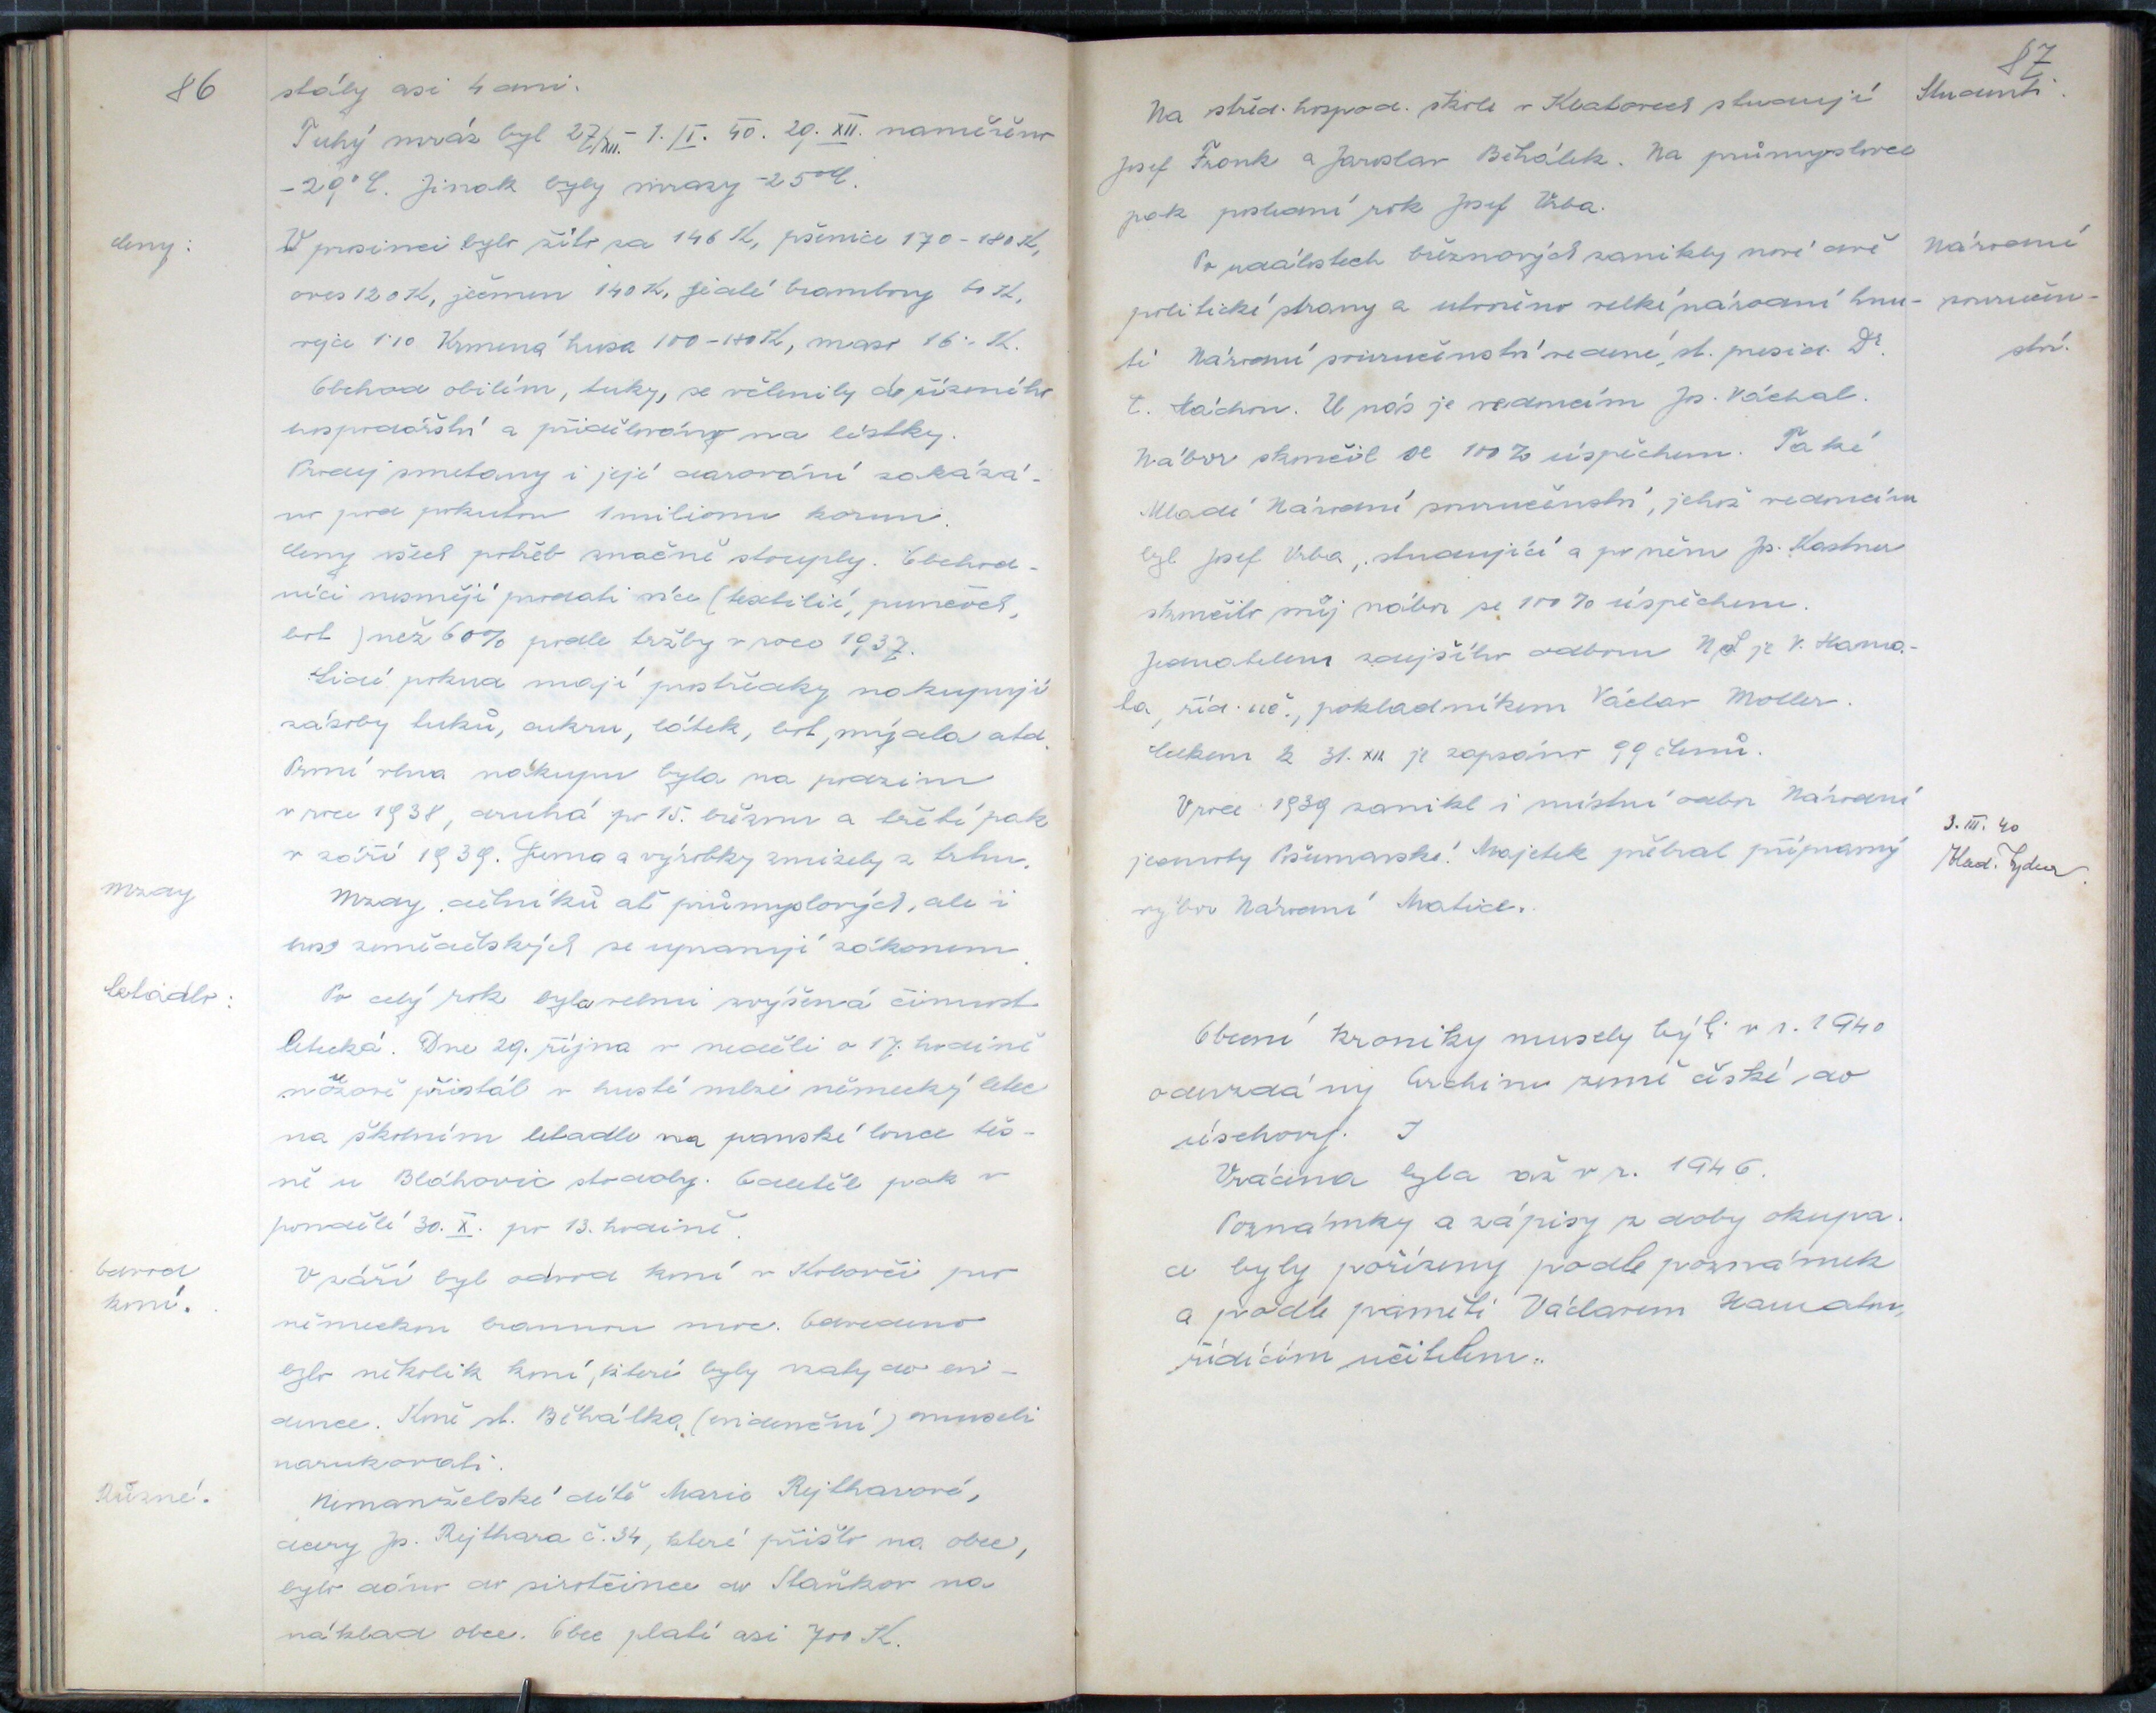 86
stály asi 4 dni.
Tuhý mráz byl 27/XII. - 1./I. 40. 29. XII. naměřeno
-29°C. Jinak byly mrazy -25°C.
Ceny:
V prosinci bylo žito za 146 K, pšenice 170-180 K,
oves 120 K, ječmen 140 K, jedlé brambory 60 K,
vejce 1·10 Krmená husa 100-180 K, maso 16·- K.
Obchod obilím, tuky, se včlenily do řízeného
hospodářství a přidělovány na lístky.
Prodej smetany i její darování zakázá-
no pod pokutou 1 milionu korun.
Ceny všech potřeb značně stouply. Obchod-
níci nesmějí prodati více (textilií, punčoch,
bot) než 60% podle tržby v roce 1937.
Lidé pokud mají prostředky nakupují
zásoby tuků, cukru, látek, bot, mýdla atd.
První vlna nákupu byla na podzim
v roce 1938, druhá po 15. březnu a třetí pak
v září 1939. Guma a výrobky zmizely z trhu.
Mzdy
Mzdy dělníků ať průmyslových, ale i
hos zemědělských se upravují zákonem.
Letadlo:
Po celý rok byla velmi zvýšená činnost
letecká. Dne 29. října v neděli o 17. hodině
nouzově přistál v husté mlze německý letec
na školním letadle na panské louce těs-
ně u Bláhovic stodoly. Odletěl pak v
pondělí 30. X. po 13. hodině.
Odvod
koní.
V září byl odvod koní v Kolovči pro
německou brannou moc. Odvedeno
bylo několik koní, které byly vzaty do evi-
dence. Koně st. Běhálka (evidenční) museli
narukovati.
Různé.
Nemanželské dítě Marie Rejtharové,
dcery Js. Rejthara č. 34, které přišlo na obec,
bylo dáno do sirotčince do Staňkov na
náklad obce. Obec platí asi 700 K.
87
Studenti.
Na střed. hospod. škole v Klatovech studují
Josef Fronk a Jaroslav Běhálek. Na průmyslovce
pak poslední rok Josef Vrba.
Národní
souručen-
ství.
Po událostech březnových zanikly nové dvě
politické strany a utvořeno velké národní hnu-
tí Národní souručenství vedené st. presid. Dr.
E. Háchou. U nás je vedoucím Jos. Váchal.
Nábor skončil se 100% úspěchem. Také
Mladé Národní souručenství, jehož vedoucím
byl Josef Vrba, studující a po něm Js. Kastner
skončilo svůj nábor se 100% úspěchem.
Jednatelem zdejšího odboru NS je V. Hama-
la, říd. uč., pokladníkem Václav Moller.
Celkem k 31. XII je zapsáno 99 členů.
V roce 1939 zanikl i místní odbor Národní
jednoty Pošumavské. Majetek přebral přípravný
výbor Národní Matice.
3. III. 40
Obecní kroniky musely býti v r. 1940
odevzdány Archivu země české do
úschovy.
Vrácena byla až v r. 1946.
Poznámky a zápisy z doby okupa-
ce byly pořízeny podle poznámek
a podle paměti Václavem Hamalou,
řídícím učitelem.